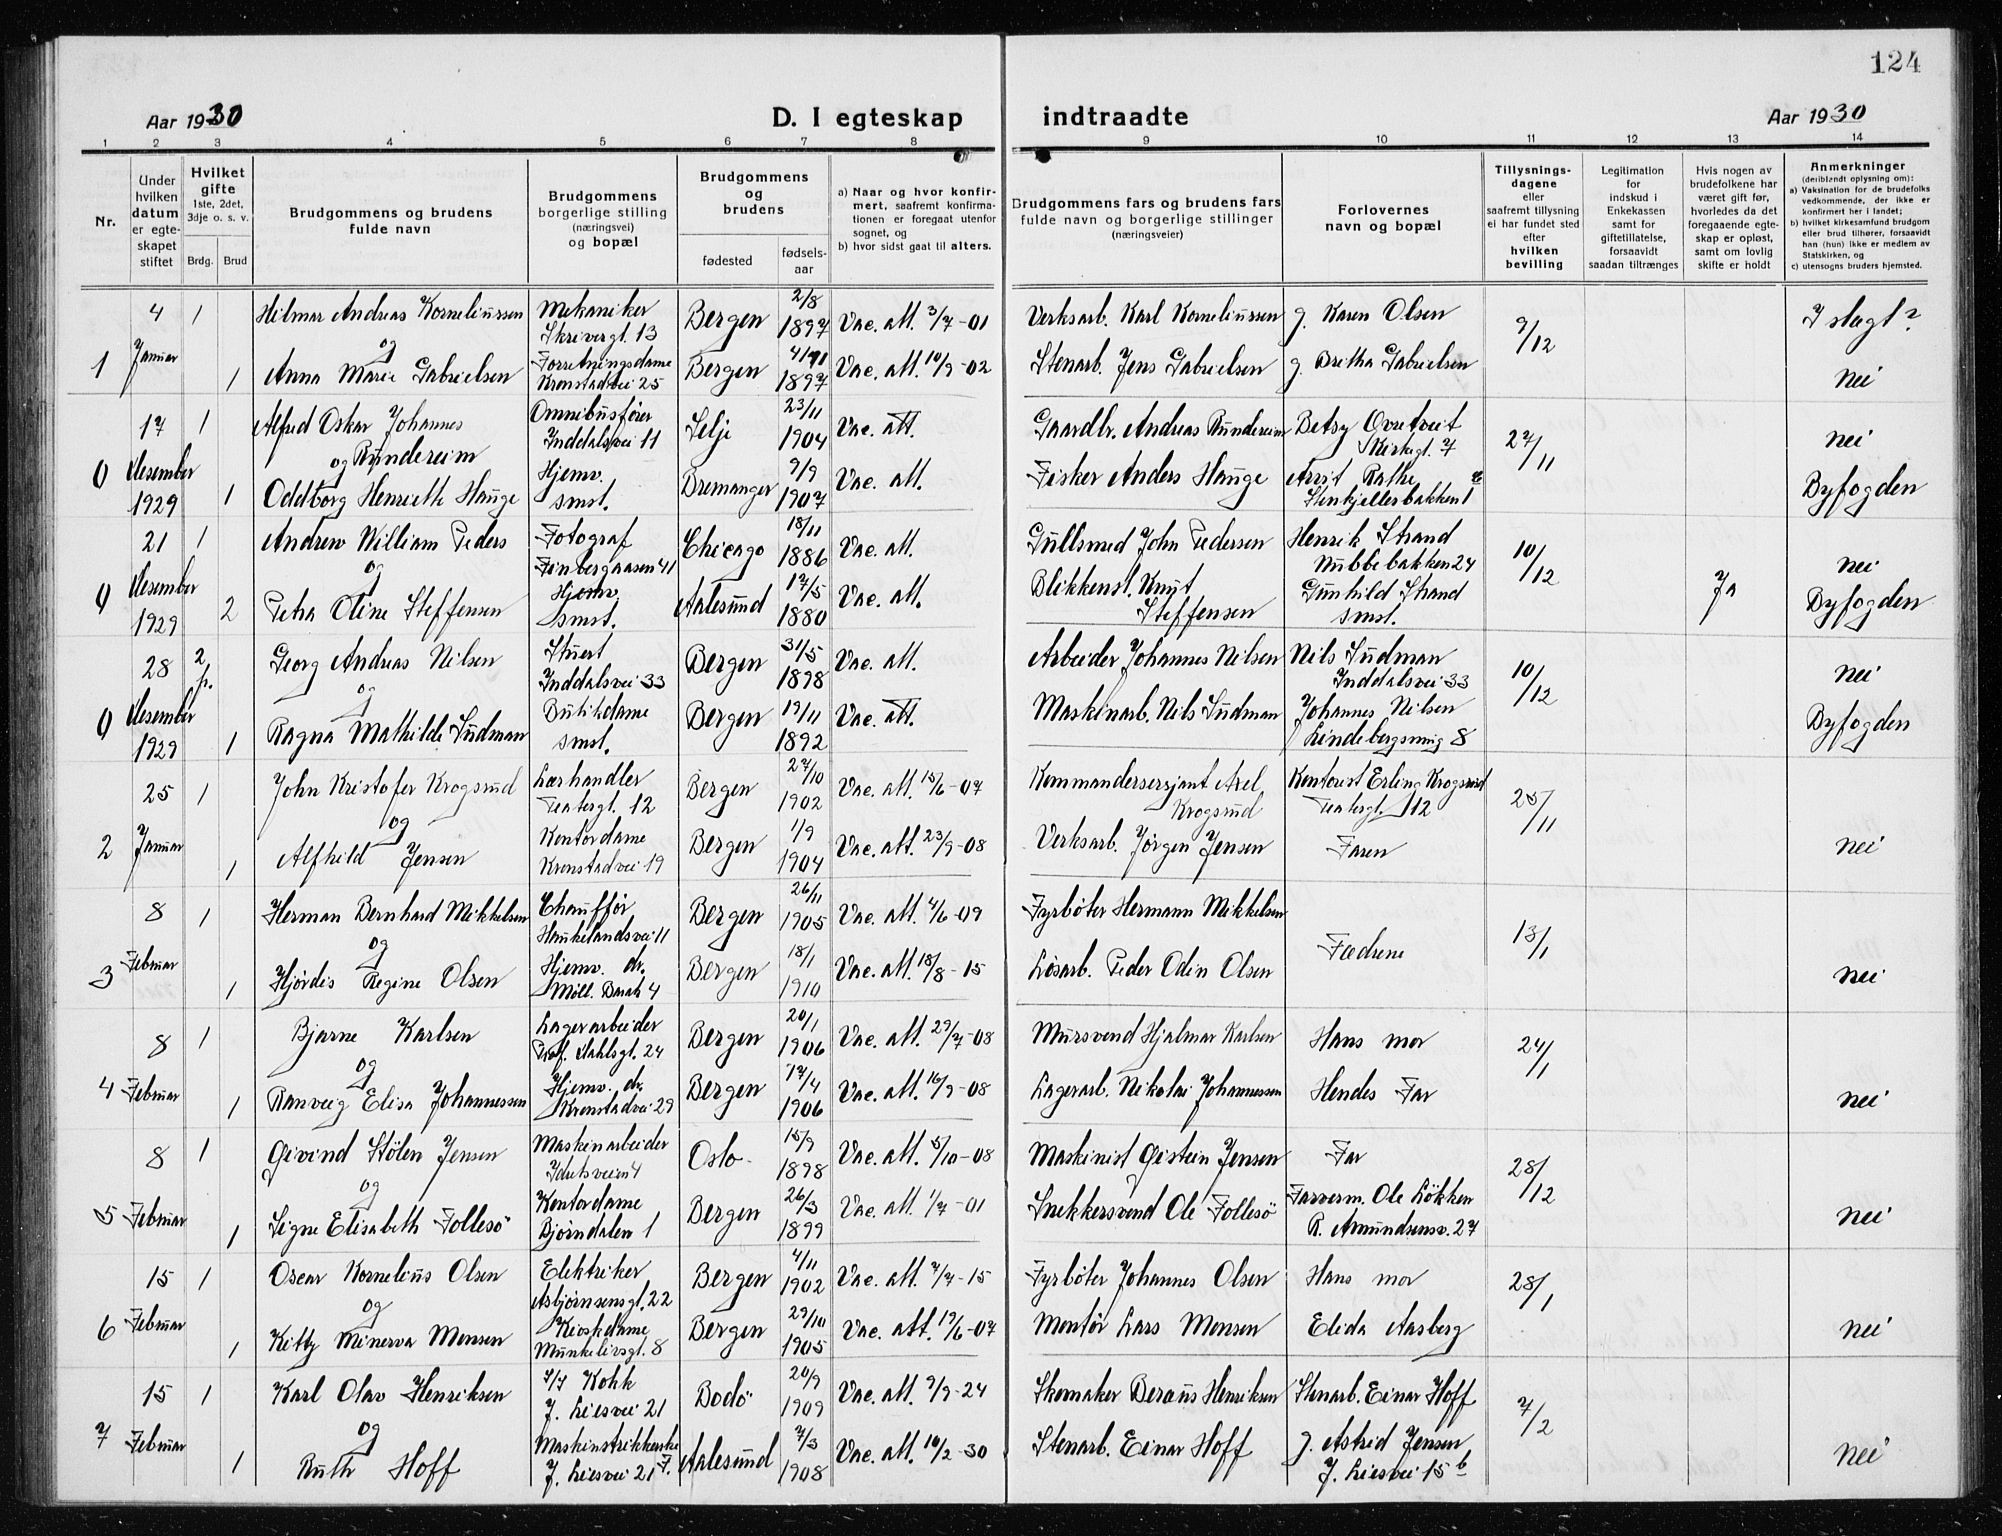 124
Aar 1930
D. I egteskap indtraadte
Aar 1930
1 2 3 4 5 6 7 8 9 10 11 12 13 14
Nr.
Under hvilken datum er egteskapet stiftet
Hvilket gifte 1ste, 2det, 3dje o. s. v.
Brdg. Brud
Brudgommens og brudens fulde navn
Brudgommens borgerlige stilling (næringsvei) og bopæl
Brudgommens og brudens
fødested
fødselsaar
a) Naar og hvor konfirmert, saafremt konfirmationen er foregaat utenfor sognet, og
b) hvor sidst gaat til alters.
Brudgommens fars og brudens fars fulde navn og borgerlige stillinger (næringsveier)
Forlovernes navn og bopæl
Tillysningsdagene eller saafremt tillysning ei har fundet sted efter hvilken bevilling
Legitimation for indskud i Enkekassen samt for giftetillatelse, forsaavidt saadan tiltrænges
Hvis nogen av brudefolkene har været gift før, hvorledes da det foregaaende egteskap er opløst, samt om lovlig skifte er holdt
Anmerkninger (deriblandt oplysning om):
a) Vaksination for de brudefolks vedkommende, der ikke er konfirmert her i landet;
b) hvilket kirkesamfund brudgom eller brud tilhører, forsaavidt han (hun) ikke er medlem av Statskirken, og
c) utensogns bruders hjemsted.
1 4 Januar 1 Hilmar Andreas Korneliussen Mekaniker Skrivergt. 13 Bergen 2/8 1897 Vac. att. 3/7-01 Verksarb. Karl Korneliussen g. Karen Olsen 9/12 I slagt?
og
1 Anna Marie Gabrielsen Forretningsdame Kronstadvei 25 Bergen 1897 Vac. att. 10/9-02 Stenarb. Jens Gabrielsen g. Britha Gabrielsen nei
0 17 Desember 1929 1 Alfred Oskar Johannes Rundereim Omnibusfører Inddalsvei 11 Selje 23/11 1904 Vac. att. Gaardbr. Andreas Rundereim Betsy Ovretveit Kirkegt. 7 27/11 nei
og
1 Oddborg Henriette Hauge Hjemv. smst. Bremanger 9/9 1907 Vac. att. Fisker Anders Hauge Arvit Rathe Stenkjellerbakken 1 Byfogden
0 21 Desember 1929 1 Andrew William Peders Fotograf Finbergaasen 41 Chicago 18/11 1886 Vac. att. Gullsmed John Pedersen Henrik Strand Nubbebakken 24 10/12 nei
og
2 Petra Oline Steffensen Hjemv. smst. Aalesund 17/5 1880 Vac. att. Blikkenst. Knut Steffensen Gunhild Strand smst. Ja Byfogden
0 28 Desember 1929 2 f. Georg Andreas Nilsen Stuert Inddalsvei 33 Bergen 31/5 1898 Vac. att. Arbeider Johannes Nilsen Nils Sudman Inddalsvei 33 10/12 nei
og
1 Ragna Mathilde Sudman Butikdame smst. Bergen 19/11 1892 Vac. att. Maskinarb. Nils Sudman Johannes Nilsen Lindebergsmug 8 Byfogden
2 25 Januar 1 John Kristofer Krogsrud Lærhandler Teatergt. 12 Bergen 27/10 1902 Vac. att. 15/6-07 Kommandersersjant Axel Krogsrud Kontorist Erling Krogsrud Teatergt. 12 25/11
og
1 Alfhild Jensen Kontordame Kronstadvei 19 Bergen 1/9 1904 Vac. att. 23/9-08 Verksarb. Jørgen Jensen Faren nei
3 8 Februar 1 Herman Bernhard Mikkelsen Chauffør Haukelandsvei 11 Bergen 26/11 1905 Vac. att. 4/6-09 Fyrbøter Hermann Mikkelsen Fædrene 13/1
og
1 Hjørdis Regine Olsen Hjemv. dr. Møll. Barak 4 Bergen 18/1 1910 Vac. att. 18/8-15 Løsarb. Peder Odin Olsen nei
4 8 Februar 1 Bjarne Karlsen Lagerarbeider Prof. Dahlsgt. 24 Bergen 20/1 1906 Vac. att. 29/7-08 Mursvend Hjalmar Karlsen Hans mor 24/1
og
1 Ranveig Elisa Johannessen Hjemv. dr. Kronstadvei 29 Bergen 17/4 1906 Vac. att. 16/9-08 Lagerarb. Nikolai Johannessen Hendes Far nei
5 8 Februar 1 Øivind Stølen Jensen Maskinarbeider Idretsveien 4 Oslo 15/9 1898 Vac. att. 5/10-08 Maskinist Øistein Jensen Far 28/12
og
1 Signe Elisabeth Follesö Kontordame Bjørndalen 1 Bergen 26/3 1899 Vac. att. 1/7-01 Snekkersvend Ole Follesö Farverm. Ole Løkken R. Amundsensv. 27 nei
6 15 Februar 1 Oscar Kornelius Olsen Elektriker Asbjørnsensgt. 22 Bergen 4/11 1902 Vac. att. 7/7-15 Fyrbøter Johannes Olsen Hans mor 28/1
og
1 Kitty Minerva Monsen Kioskdame Munkelivsgt. 8 Bergen 29/10 1905 Vac. att. 19/6-07 Montør Lars Monsen Elida Aasberg nei
7 15 Februar 1 Karl Olav Henriksen Kokk J. Liesvei 21 Bodö 20/9 1909 Vac. att. 9/9-24 Skomaker Beraus Henriksen Stenarb. Einar Hoff 7/2
og
1 Ruth Hoff Maskinstrikkerske J. Liesvei 21 Aalesund 7/3 1908 Vac. att. 10/2-30 Stenarb. Einar Hoff g. Astrid Jensen J. Liesvei 15 b nei